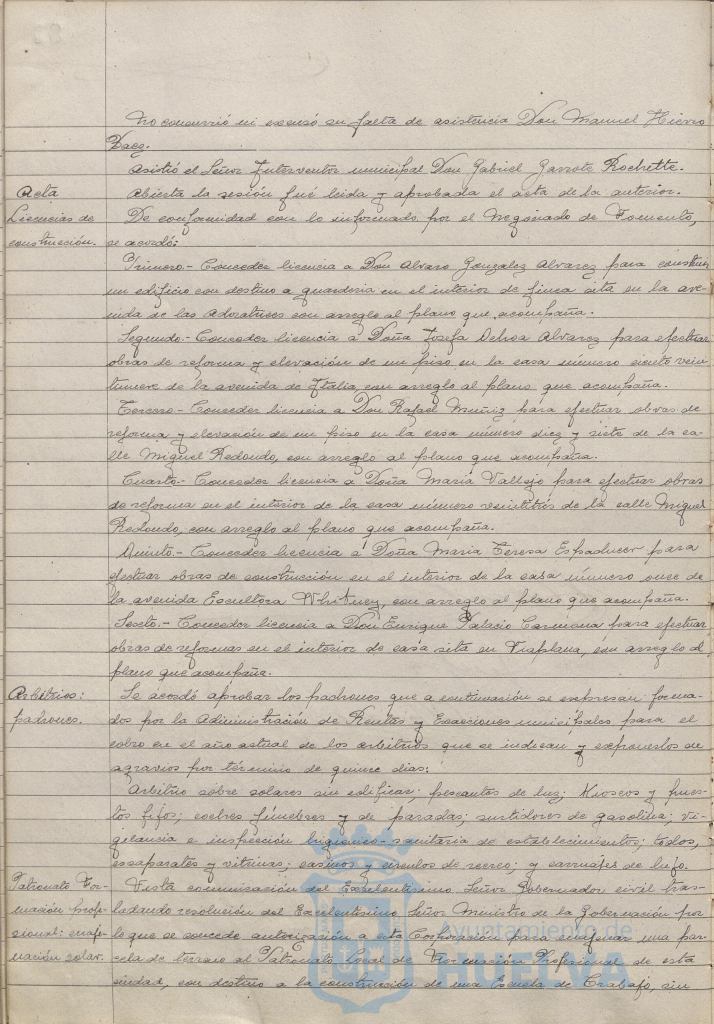 No concurrió ni excusó su falta de asistencia Don Manuel Hierro
Daez.
Asistió el Señor Interventor municipal Don Gabriel Garrote Rochette.
Acta
Abierta la sesión fué leida y aprobada el acta de la anterior.
Licencias de
construcción.
De conformidad con lo informado por el Negociado de Fomento,
se acordó:
Primero.- Conceder licencia a Don Alvaro Gonzalez Alvarez para construir
un edificio con destino a guarderia en el interior de finca sita en la ave-
nida de las Adoratrices con arreglo al plano que acompaña.
Segundo.- Conceder licencia a Doña Josefa Ochoa Alvarez para efectuar
obras de reforma y elevación de un piso en la casa número ciento vein-
tinueve de la avenida de Italia, con arreglo al plano que acompaña.
Tercero.- Conceder licencia a Don Rafael Muñiz para efectuar obras de
reforma y elevación de un piso en la casa número diez y siete de la ca-
lle Miguel Redondo, con arreglo al plano que acompaña.
Cuarto.- Conceder licencia a Doña Maria Vallejo para efectuar obras
de reforma en el interior de la casa número veintitrés de la calle Miguel
Redondo, con arreglo al plano que acompaña.
Quinto.- Conceder licencia a Doña Maria Teresa Espaducer para
efectuar obras de construcción en el interior de la casa número once de
la avenida Escultora Whitney, con arreglo al plano que acompaña.
Sexto.- Conceder licencia a Don Enrique Palacio Carmona para efectuar
obras de reformas en el interior de casa sita en Viaplana, con arreglo al
plano que acompaña.
Arbitrios:
padrones.
Se acordó aprobar los padrones que a continuación se expresan forma-
dos por la Administración de Rentas y Exacciones municipales para el
cobro en el año actual de los arbitrios que se indican y expuestos de
agravios por término de quince dias:
Arbitrio sobre solares sin edificar; pescantes de luz; Kioscos y pues-
tos fijos; coches fúnebres y de paradas; surtidores de gasolina; vi-
gilancia e inspección higienico-sanitaria de establecimientos; todos,
escaparates y vitrinas; casinos y circulos de recreo; y carruajes de lujo.
Patronato For-
mación profe-
sional: enaje-
nación solar.
Vista comunicación del Excelentisimo Señor Gobernador civil tras-
ladando resolución del Excelentisimo Señor Ministro de la Gobernación por
lo que se concede autorización a esta Corporación para enajenar una par-
cela de terreno al Patronato local de Formación Profesional de esta
ciudad, con destino a la construcción de una Escuela de Trabajo, sin
Ayuntamiento de
HUELVA